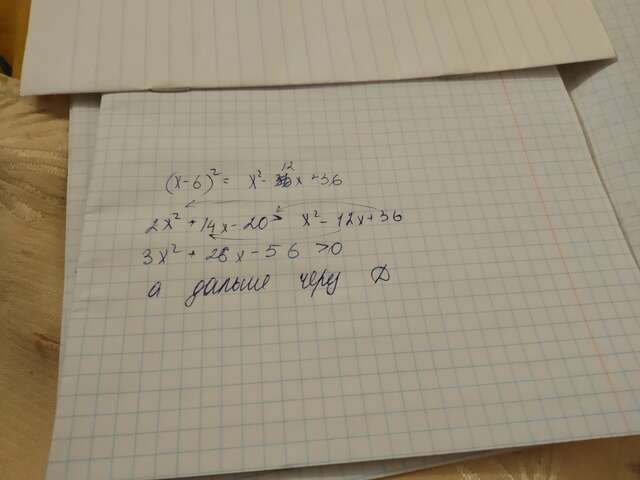 (x-6)² = x² - 12x + 36
2x² + 14x - 20 > x² - 12x + 36
3x² + 26x - 56 > 0
а дальше черу D